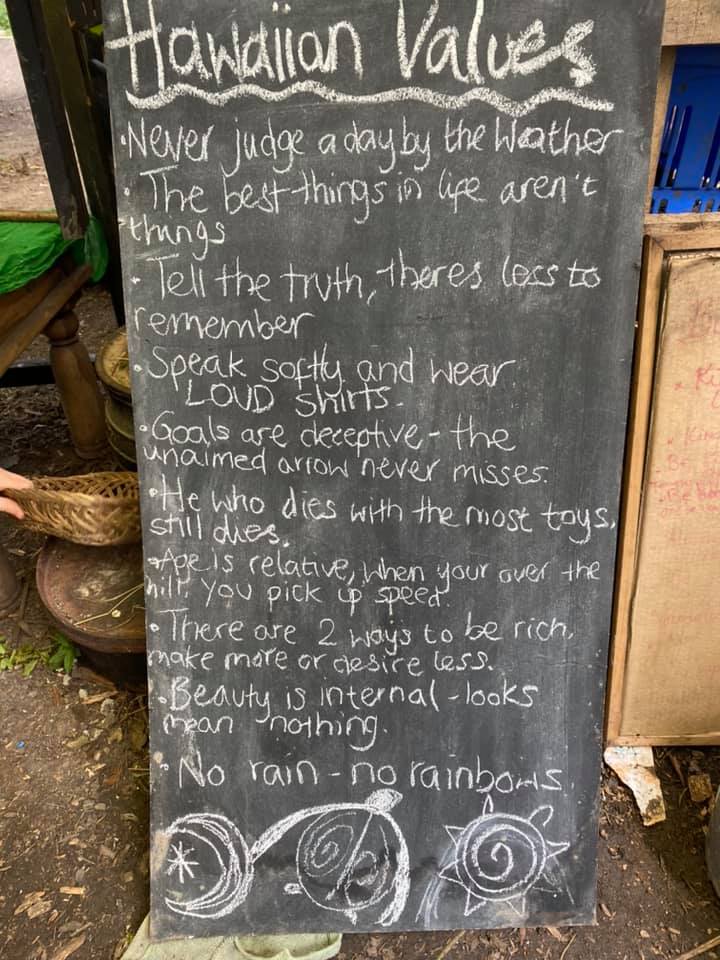 Hawaiian Values
• Never judge a day by the Weather
• The best things in life aren't
things
• Tell the truth, theres less to
remember
• Speak softly and wear
LOUD Shirts.
• Goals are deceptive - the
unaimed arrow never misses.
• He who dies with the most toys,
still dies.
• Age is relative, when your over the
hill, you pick up speed.
• There are 2 ways to be rich,
make more or desire less.
• Beauty is internal - looks
mean nothing.
• No rain - no rainbows.